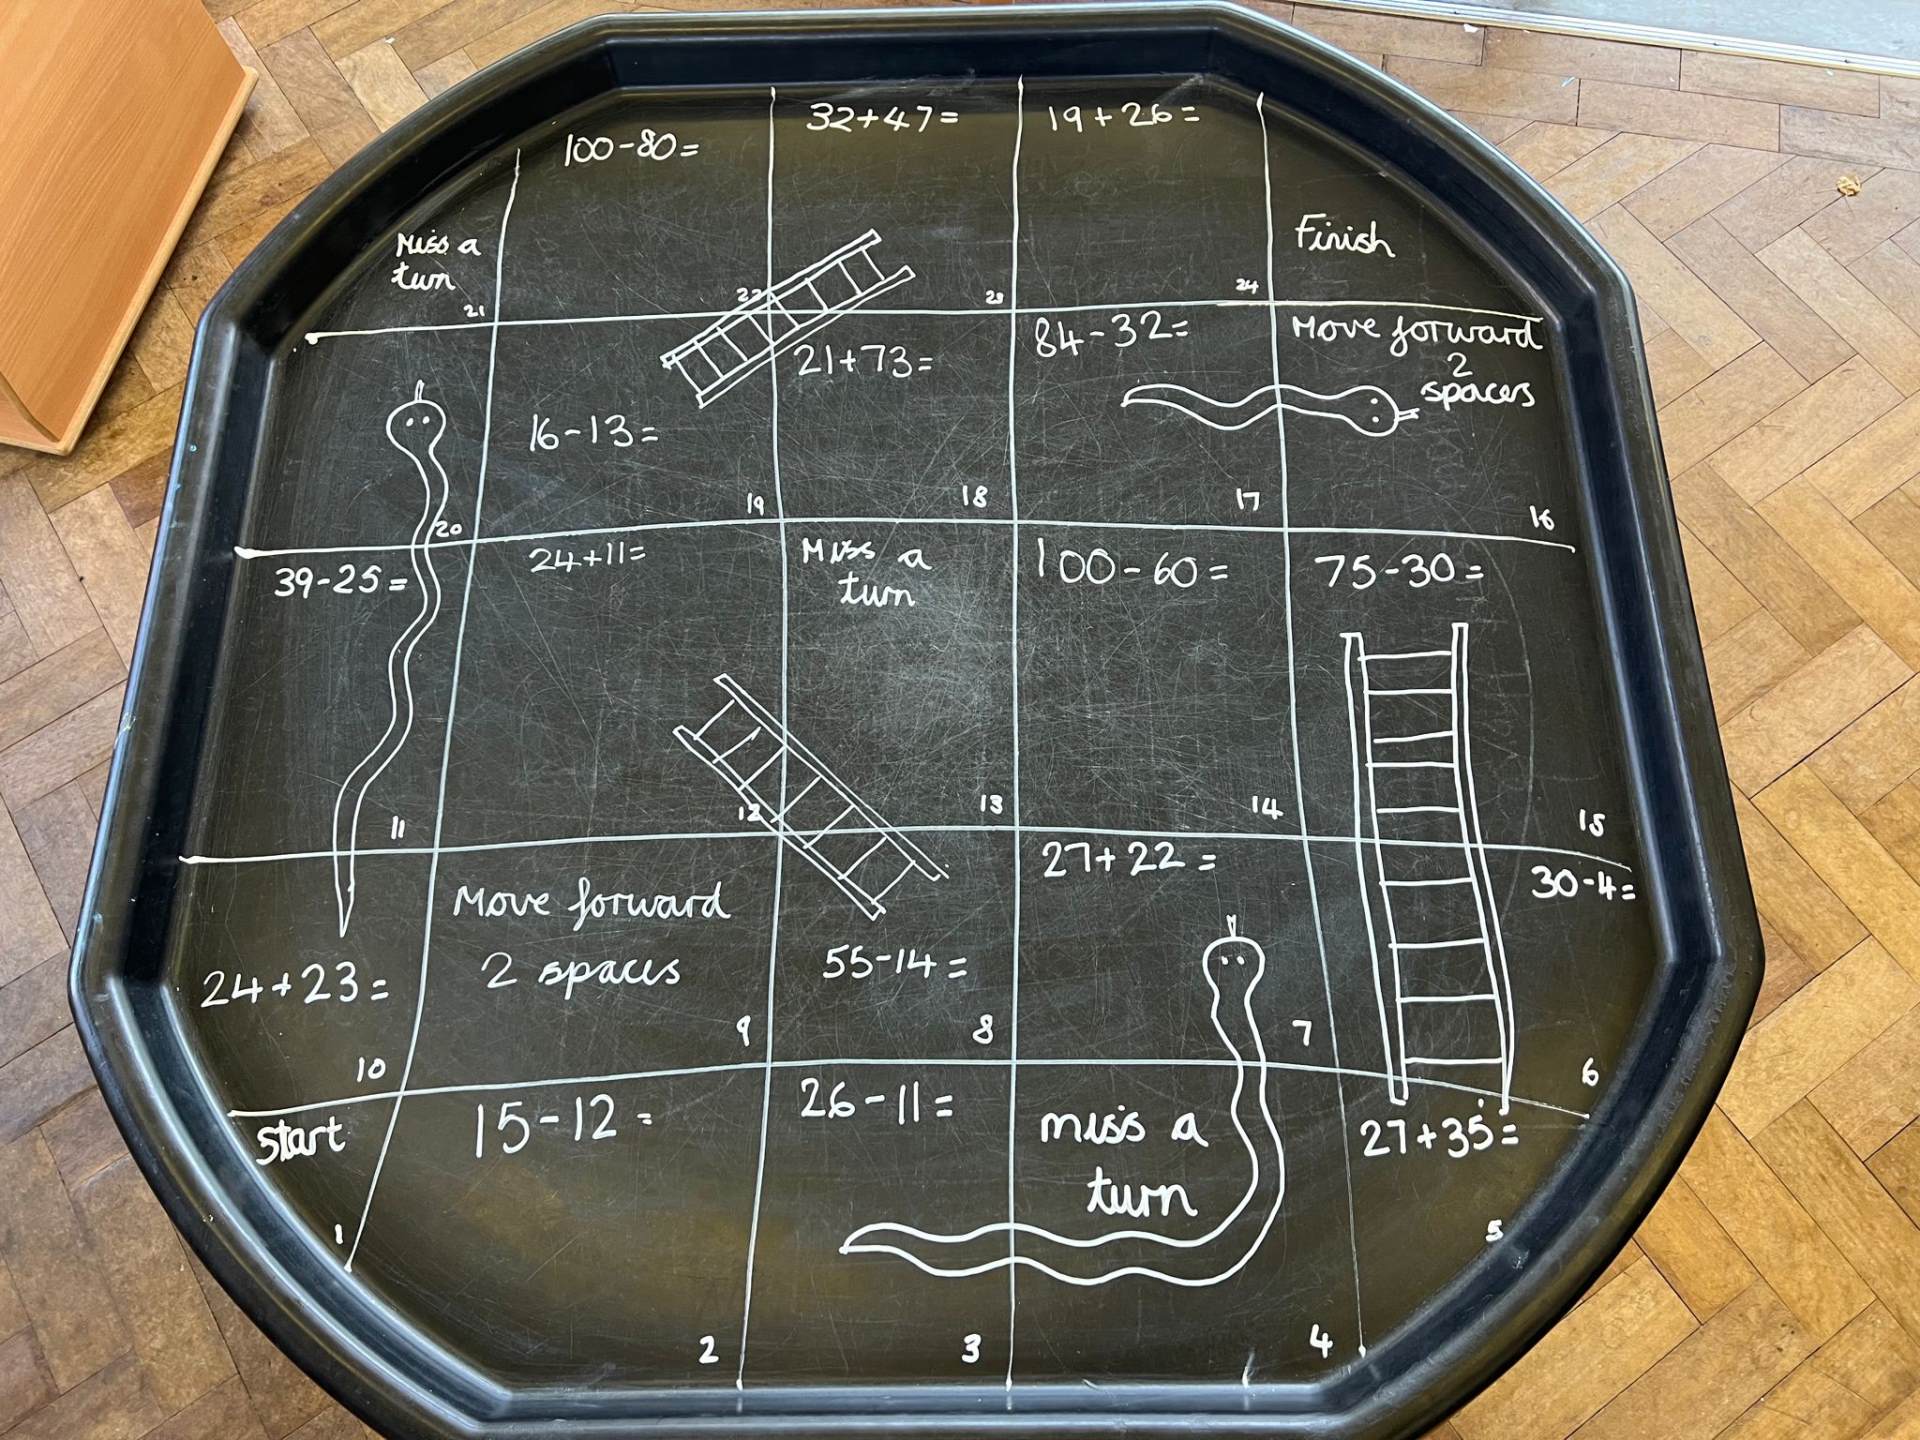 100-80=
32+47=
19+26=
Miss a
turn
21
22
23
24
Finish
16-13=
21+73=
84-32=
Move forward
2
spaces
20
19
18
17
16
39-25=
24+11=
Miss a
turn
100-60=
75-30=
11
12
13
14
15
24+23=
Move forward
2 spaces
55-14=
27+22=
30-4=
10
9
8
7
6
Start
15-12=
26-11=
miss a
turn
27+35=
1
2
3
4
5